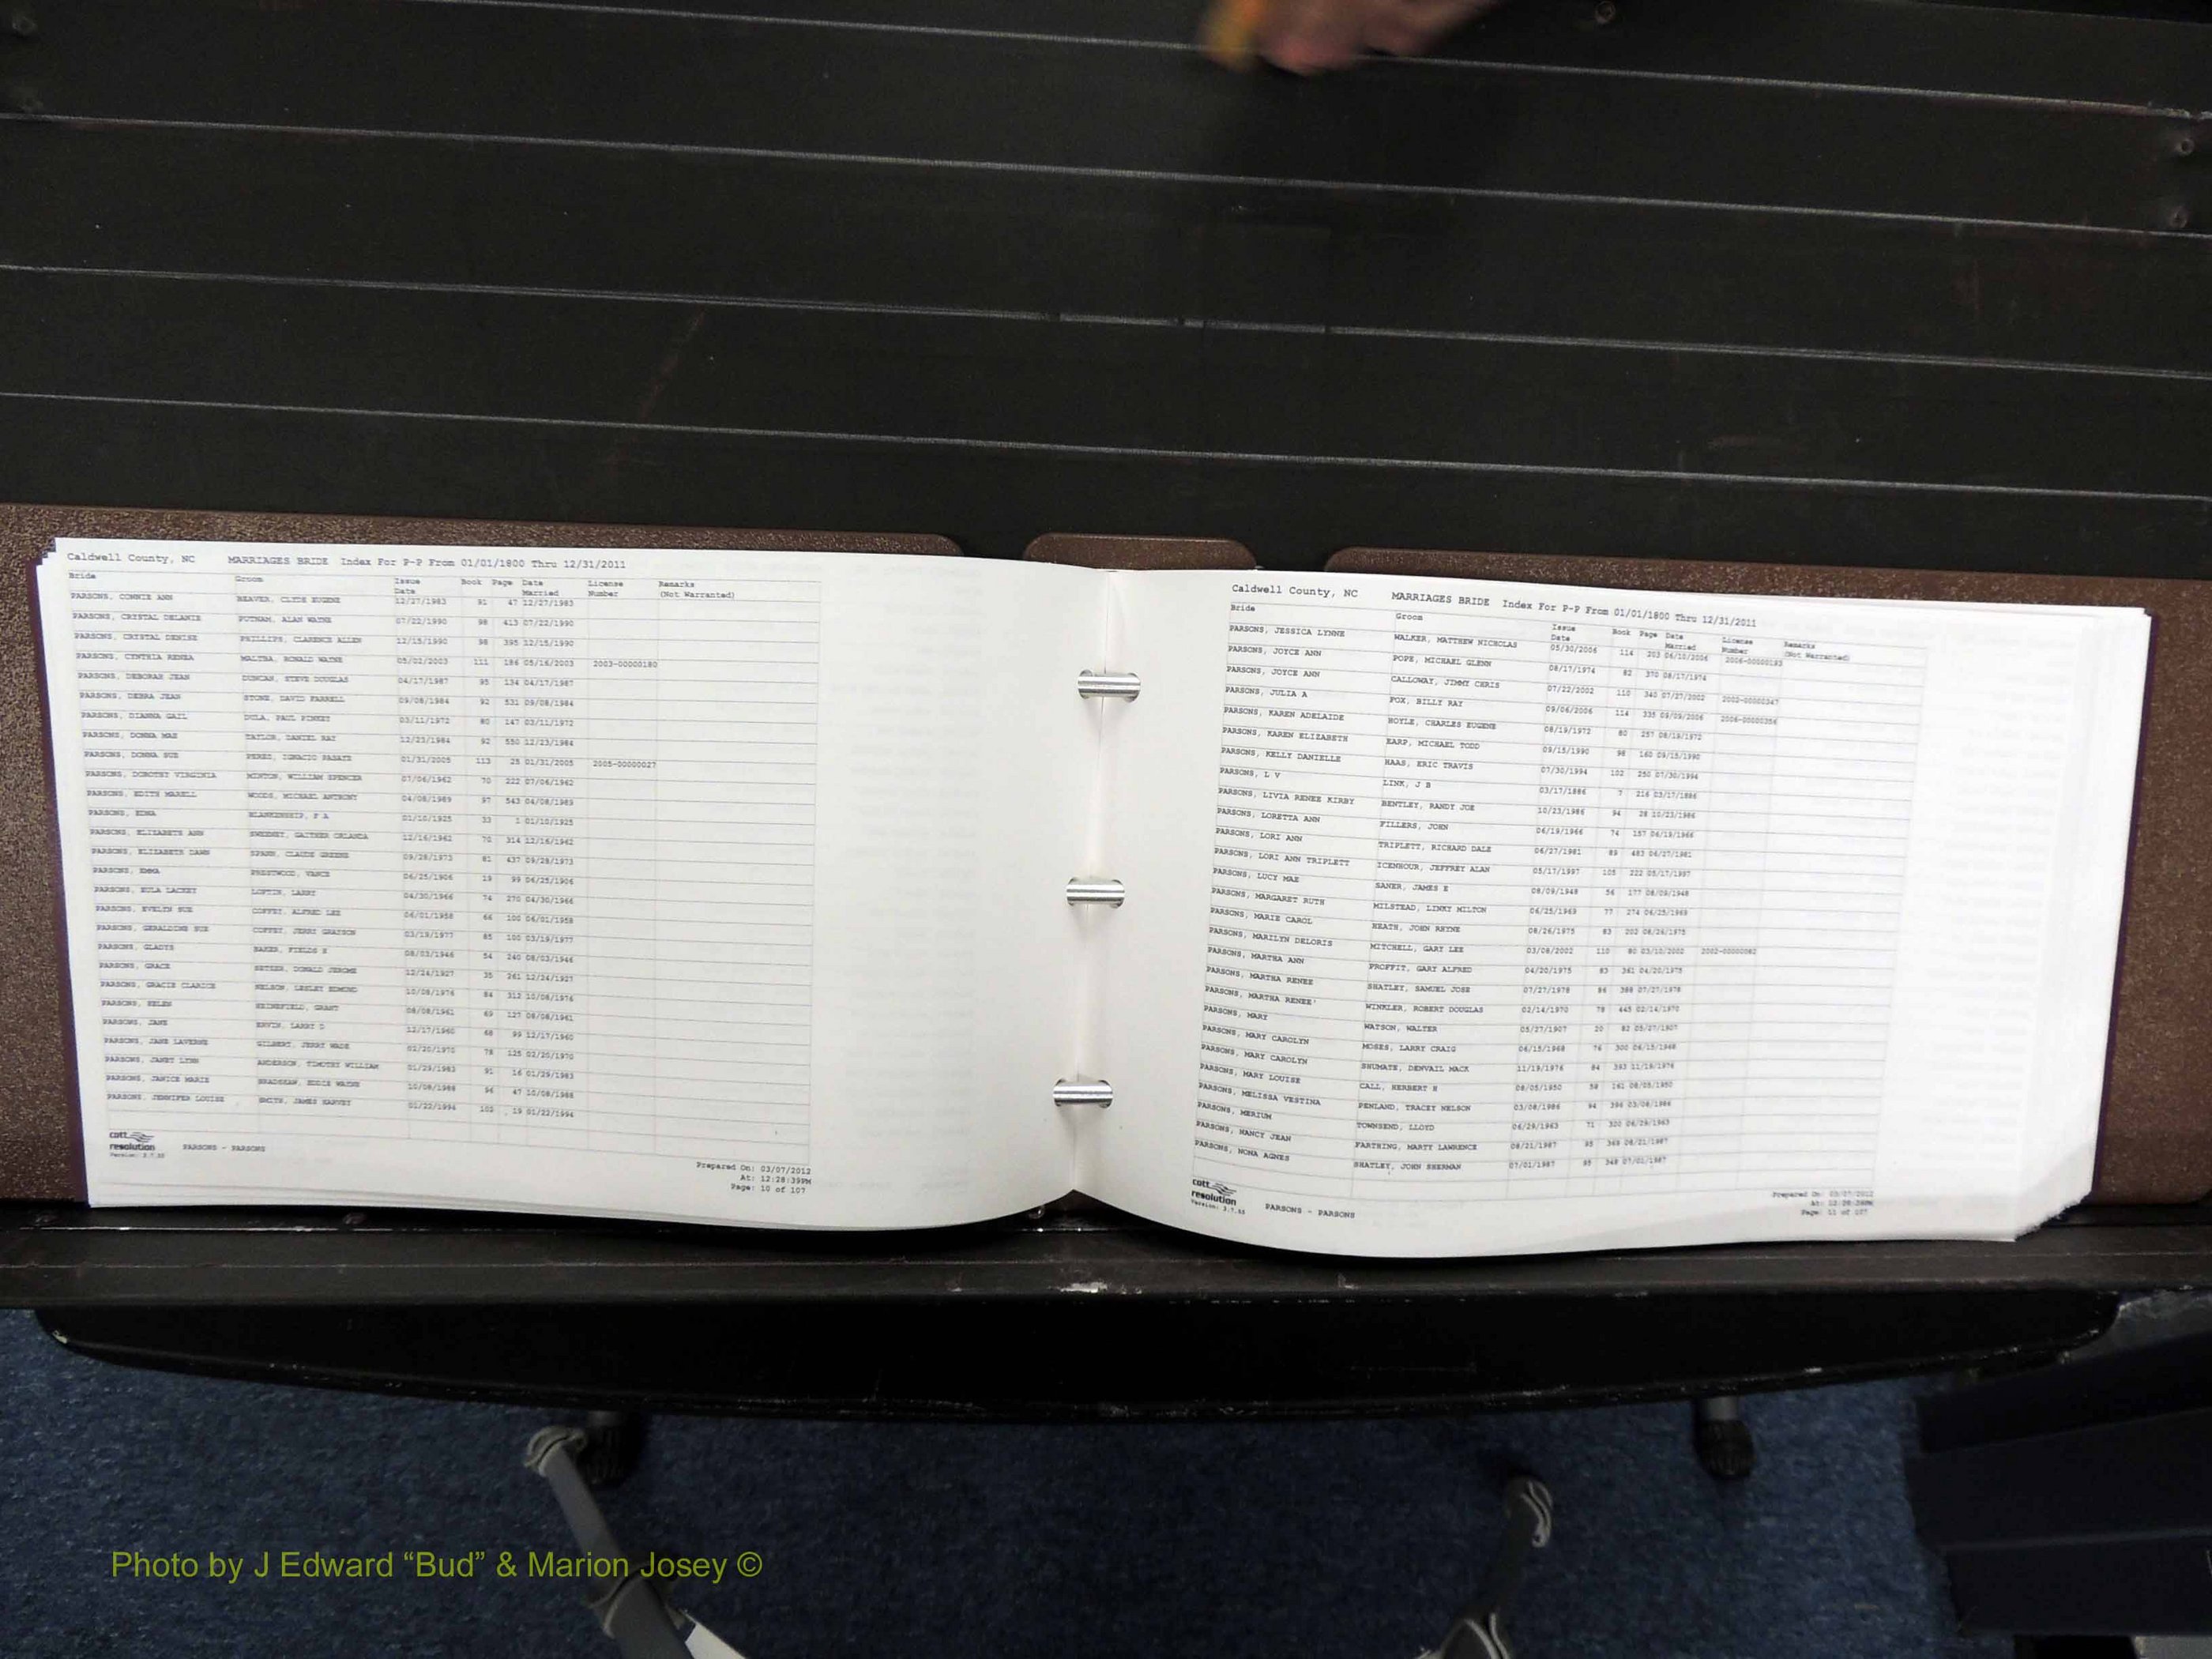 Caldwell County, NC MARRIAGES BRIDE Index For P-P From 01/01/1800 Thru 12/31/2011
Bride Groom Issue Date Book Page Date Married License Number Remarks (Not Warranted)
PARSONS, CONNIE ANN BEAVER, CLYDE EUGENE 12/27/1983 91 47 12/27/1983
PARSONS, CRYSTAL DELANIE PUTNAM, ALAN WAYNE 07/22/1990 98 413 07/22/1990
PARSONS, CRYSTAL DENISE PHILLIPS, CLARENCE ALLEN 12/15/1990 98 395 12/15/1990
PARSONS, CYNTHIA RENEA WALTBA, RONALD WAYNE 05/02/2003 111 186 05/16/2003 2003-00000180
PARSONS, DEBORAH JEAN DUNCAN, STEVE DOUGLAS 04/17/1987 95 134 04/17/1987
PARSONS, DEBRA JEAN STONE, DAVID FARRELL 09/08/1984 92 531 09/08/1984
PARSONS, DIANNA GAIL DULA, PAUL PINKEY 03/11/1972 80 147 03/11/1972
PARSONS, DONNA MAE TAYLOR, DANIEL RAY 12/23/1984 92 550 12/23/1984
PARSONS, DONNA SUE PEREZ, IGNACIO 01/31/2005 113 25 01/31/2005 2005-00000027
PARSONS, DOROTHY VIRGINIA MINTON, WILLIAM SPENCER 07/06/1962 70 222 07/06/1962
PARSONS, EDITH MARELL WOODS, MICHAEL ANTHONY 04/08/1989 97 543 04/08/1989
PARSONS, EDNA BLANKENSHIP, F A 01/10/1925 33 1 01/10/1925
PARSONS, ELIZABETH ANN SWEENEY, GAITHER ORLANDA 12/16/1962 70 314 12/16/1962
PARSONS, ELIZABETH DAWN SPANN, CLAUDE GREENE 09/28/1973 81 437 09/28/1973
PARSONS, EMMA PRESTWOOD, VANCE 06/25/1906 19 99 06/25/1906
PARSONS, EULA LACKEY LOFTIN, LARRY 04/30/1966 74 270 04/30/1966
PARSONS, EVELYN SUE COFFEY, ALFRED LEE 06/01/1958 66 100 06/01/1958
PARSONS, GERALDINE SUE COFFEY, JERRY GRAYSON 03/19/1977 85 100 03/19/1977
PARSONS, GLADYS BAKER, FIELDS E 08/03/1946 54 240 08/03/1946
PARSONS, GRACE SETZER, DONALD JEROME 12/24/1927 35 261 12/24/1927
PARSONS, GRACIE CLARICE NELSON, LESLEY EDMUND 10/08/1976 84 312 10/08/1976
PARSONS, HELEN GRANT 08/08/1961 69 127 08/08/1961
PARSONS, JANE ERVIN, LARRY D 12/17/1960 68 99 12/17/1960
PARSONS, JANE LAVERNE GILBERT, JERRY WADE 02/20/1970 78 125 02/20/1970
PARSONS, JANET LYNN ANDERSON, TIMOTHY WILLIAM 01/29/1983 91 16 01/29/1983
PARSONS, JANICE MARIE BRADSHAW, EDDIE WAYNE 10/08/1988 96 47 10/08/1988
PARSONS, JENNIFER LOUISE SMITH, JAMES HARVEY 01/22/1994 102 19 01/22/1994
cott
resolution
Version: 3.7.55
PARSONS - PARSONS
Prepared On: 03/07/2012
At: 12:28:39PM
Page: 10 of 107
Caldwell County, NC MARRIAGES BRIDE Index For P-P From 01/01/1800 Thru 12/31/2011
Bride Groom Issue Date Book Page Date Married License Number Remarks (Not Warranted)
PARSONS, JESSICA LYNNE WALKER, MATTHEW NICHOLAS 05/30/2006 114 203 06/10/2006 2006-00000193
PARSONS, JOYCE ANN POPE, MICHAEL GLENN 08/17/1974 82 370 08/17/1974
PARSONS, JOYCE ANN CALLOWAY, JIMMY CHRIS 07/22/2002 110 340 07/27/2002 2002-00000347
PARSONS, JULIA A FOX, BILLY RAY 09/06/2006 114 335 09/09/2006 2006-00000356
PARSONS, KAREN ADELAIDE HOYLE, CHARLES EUGENE 08/19/1972 80 257 08/19/1972
PARSONS, KAREN ELIZABETH EARP, MICHAEL TODD 09/15/1990 98 160 09/15/1990
PARSONS, KELLY DANIELLE HAAS, ERIC TRAVIS 07/30/1994 102 250 07/30/1994
PARSONS, L V LINK, J B 03/17/1886 7 216 03/17/1886
PARSONS, LIVIA RENEE KIRBY BENTLEY, RANDY JOE 10/23/1986 94 28 10/23/1986
PARSONS, LORETTA ANN FILLERS, JOHN 06/19/1966 74 157 06/19/1966
PARSONS, LORI ANN TRIPLETT, RICHARD DALE 06/27/1981 89 483 06/27/1981
PARSONS, LORI ANN TRIPLETT ICENHOUR, JEFFREY ALAN 05/17/1997 105 222 05/17/1997
PARSONS, LUCY MAE SANER, JAMES E 08/09/1948 56 177 08/09/1948
PARSONS, MARGARET RUTH MILSTEAD, LINKY MILTON 06/25/1969 77 274 06/25/1969
PARSONS, MARIE CAROL HEATH, JOHN RHYNE 08/26/1975 83 202 08/26/1975
PARSONS, MARILYN DELORIS MITCHELL, GARY LEE 03/08/2002 110 80 03/10/2002 2002-00000082
PARSONS, MARTHA ANN PROFFIT, GARY ALFRED 04/20/1975 83 361 04/20/1975
PARSONS, MARTHA RENEE SHATLEY, SAMUEL JOSE 07/27/1978 86 388 07/27/1978
PARSONS, MARTHA RENEE' WINKLER, ROBERT DOUGLAS 02/14/1970 78 445 02/14/1970
PARSONS, MARY WATSON, WALTER 05/27/1907 20 82 05/27/1907
PARSONS, MARY CAROLYN MOSES, LARRY CRAIG 06/15/1968 76 300 06/15/1968
PARSONS, MARY CAROLYN SHUMATE, DENVAIL MACK 11/19/1976 84 393 11/19/1976
PARSONS, MARY LOUISE CALL, HERBERT H 08/05/1950 58 161 08/05/1950
PARSONS, MELISSA VESTINA PENLAND, TRACEY NELSON 03/08/1986 94 396 03/08/1986
PARSONS, MERIUM TOWNSEND, LLOYD 06/29/1963 71 300 06/29/1963
PARSONS, NANCY JEAN FARTHING, MARTY LAWRENCE 08/21/1987 95 369 08/21/1987
PARSONS, NONA AGNES SHATLEY, JOHN SHERMAN 07/01/1987 95 348 07/01/1987
cott
resolution
Version: 3.7.55
PARSONS - PARSONS
Prepared On: 03/07/2012
Page: 11 of 107
Photo by J Edward “Bud” & Marion Josey ©